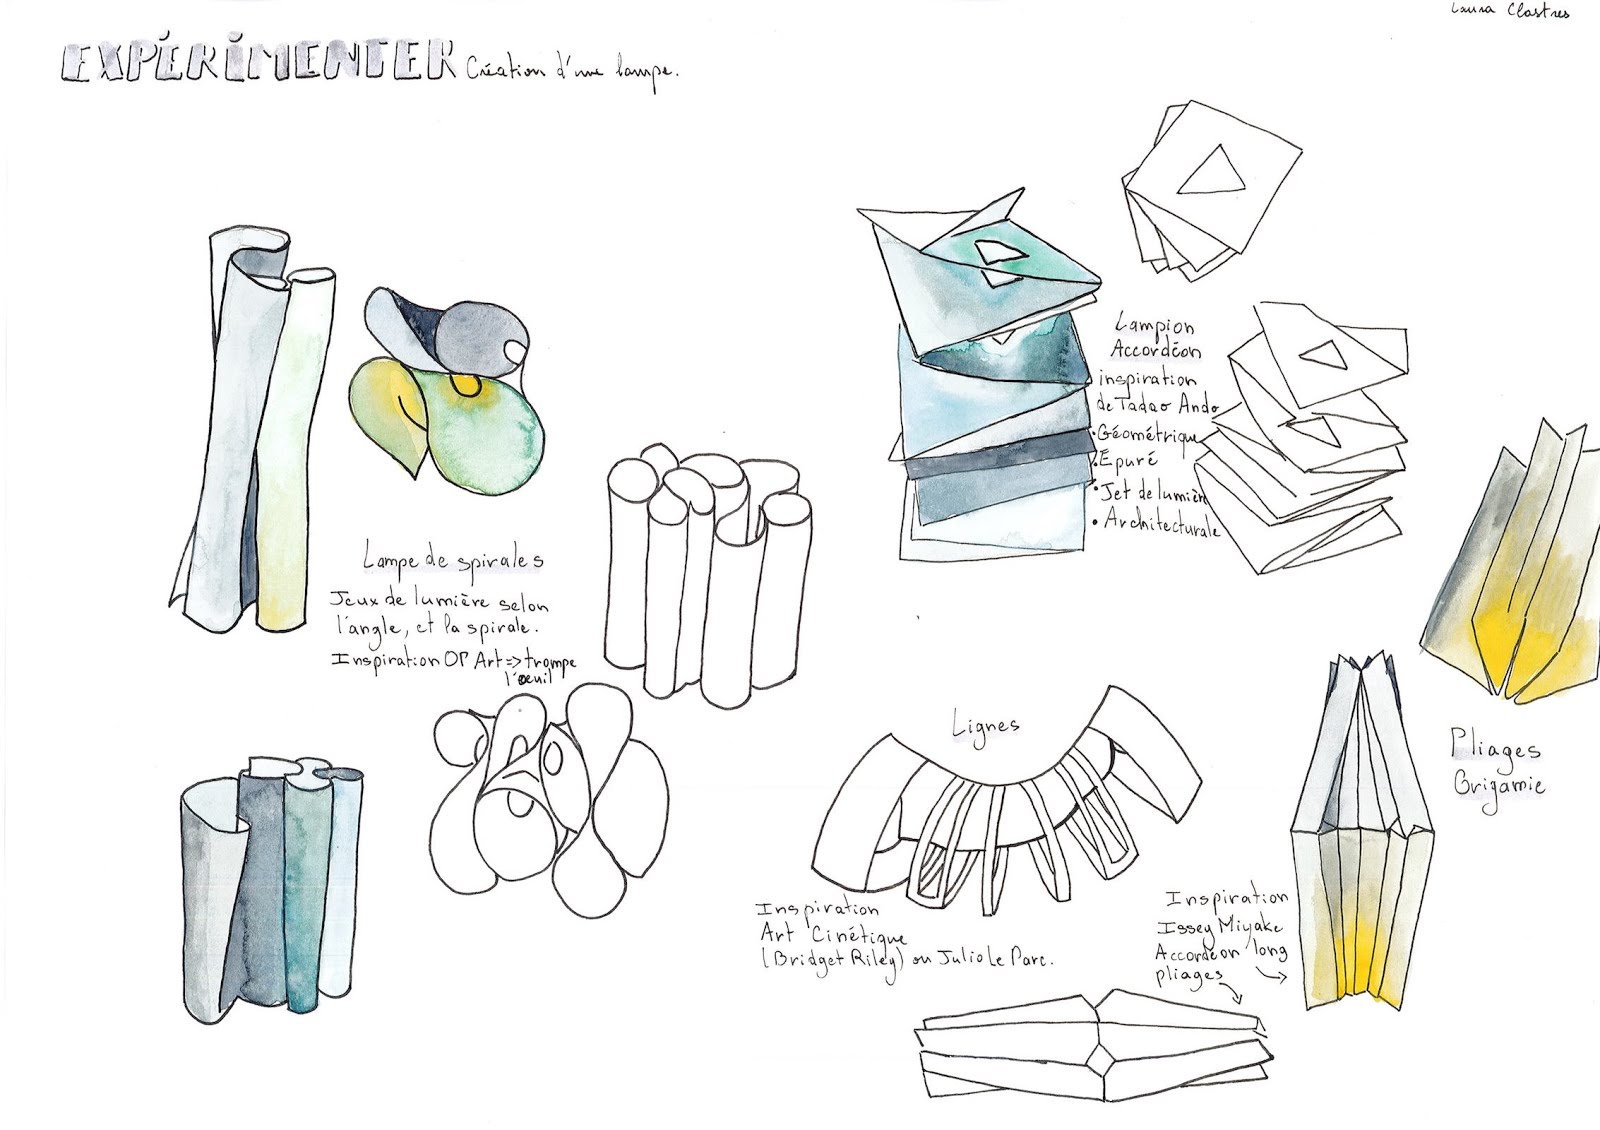 Laura Clastres
EXPÉRIMENTER Création d'une lampe.
Lampe de spirales
Jeux de lumière selon
l'angle, et la spirale.
Inspiration OP Art => trompe
l'oeuil
Lampion
Accordéon
inspiration
de Tadao Ando
• Géométrique
• Epuré
• Jet de lumière
• Architecturale
Lignes
Inspiration
Art Cinétique
(Bridget Riley) ou Julio Le Parc.
Pliages
Origamie
Inspiration
Issey Miyake
Accordéon long
pliages